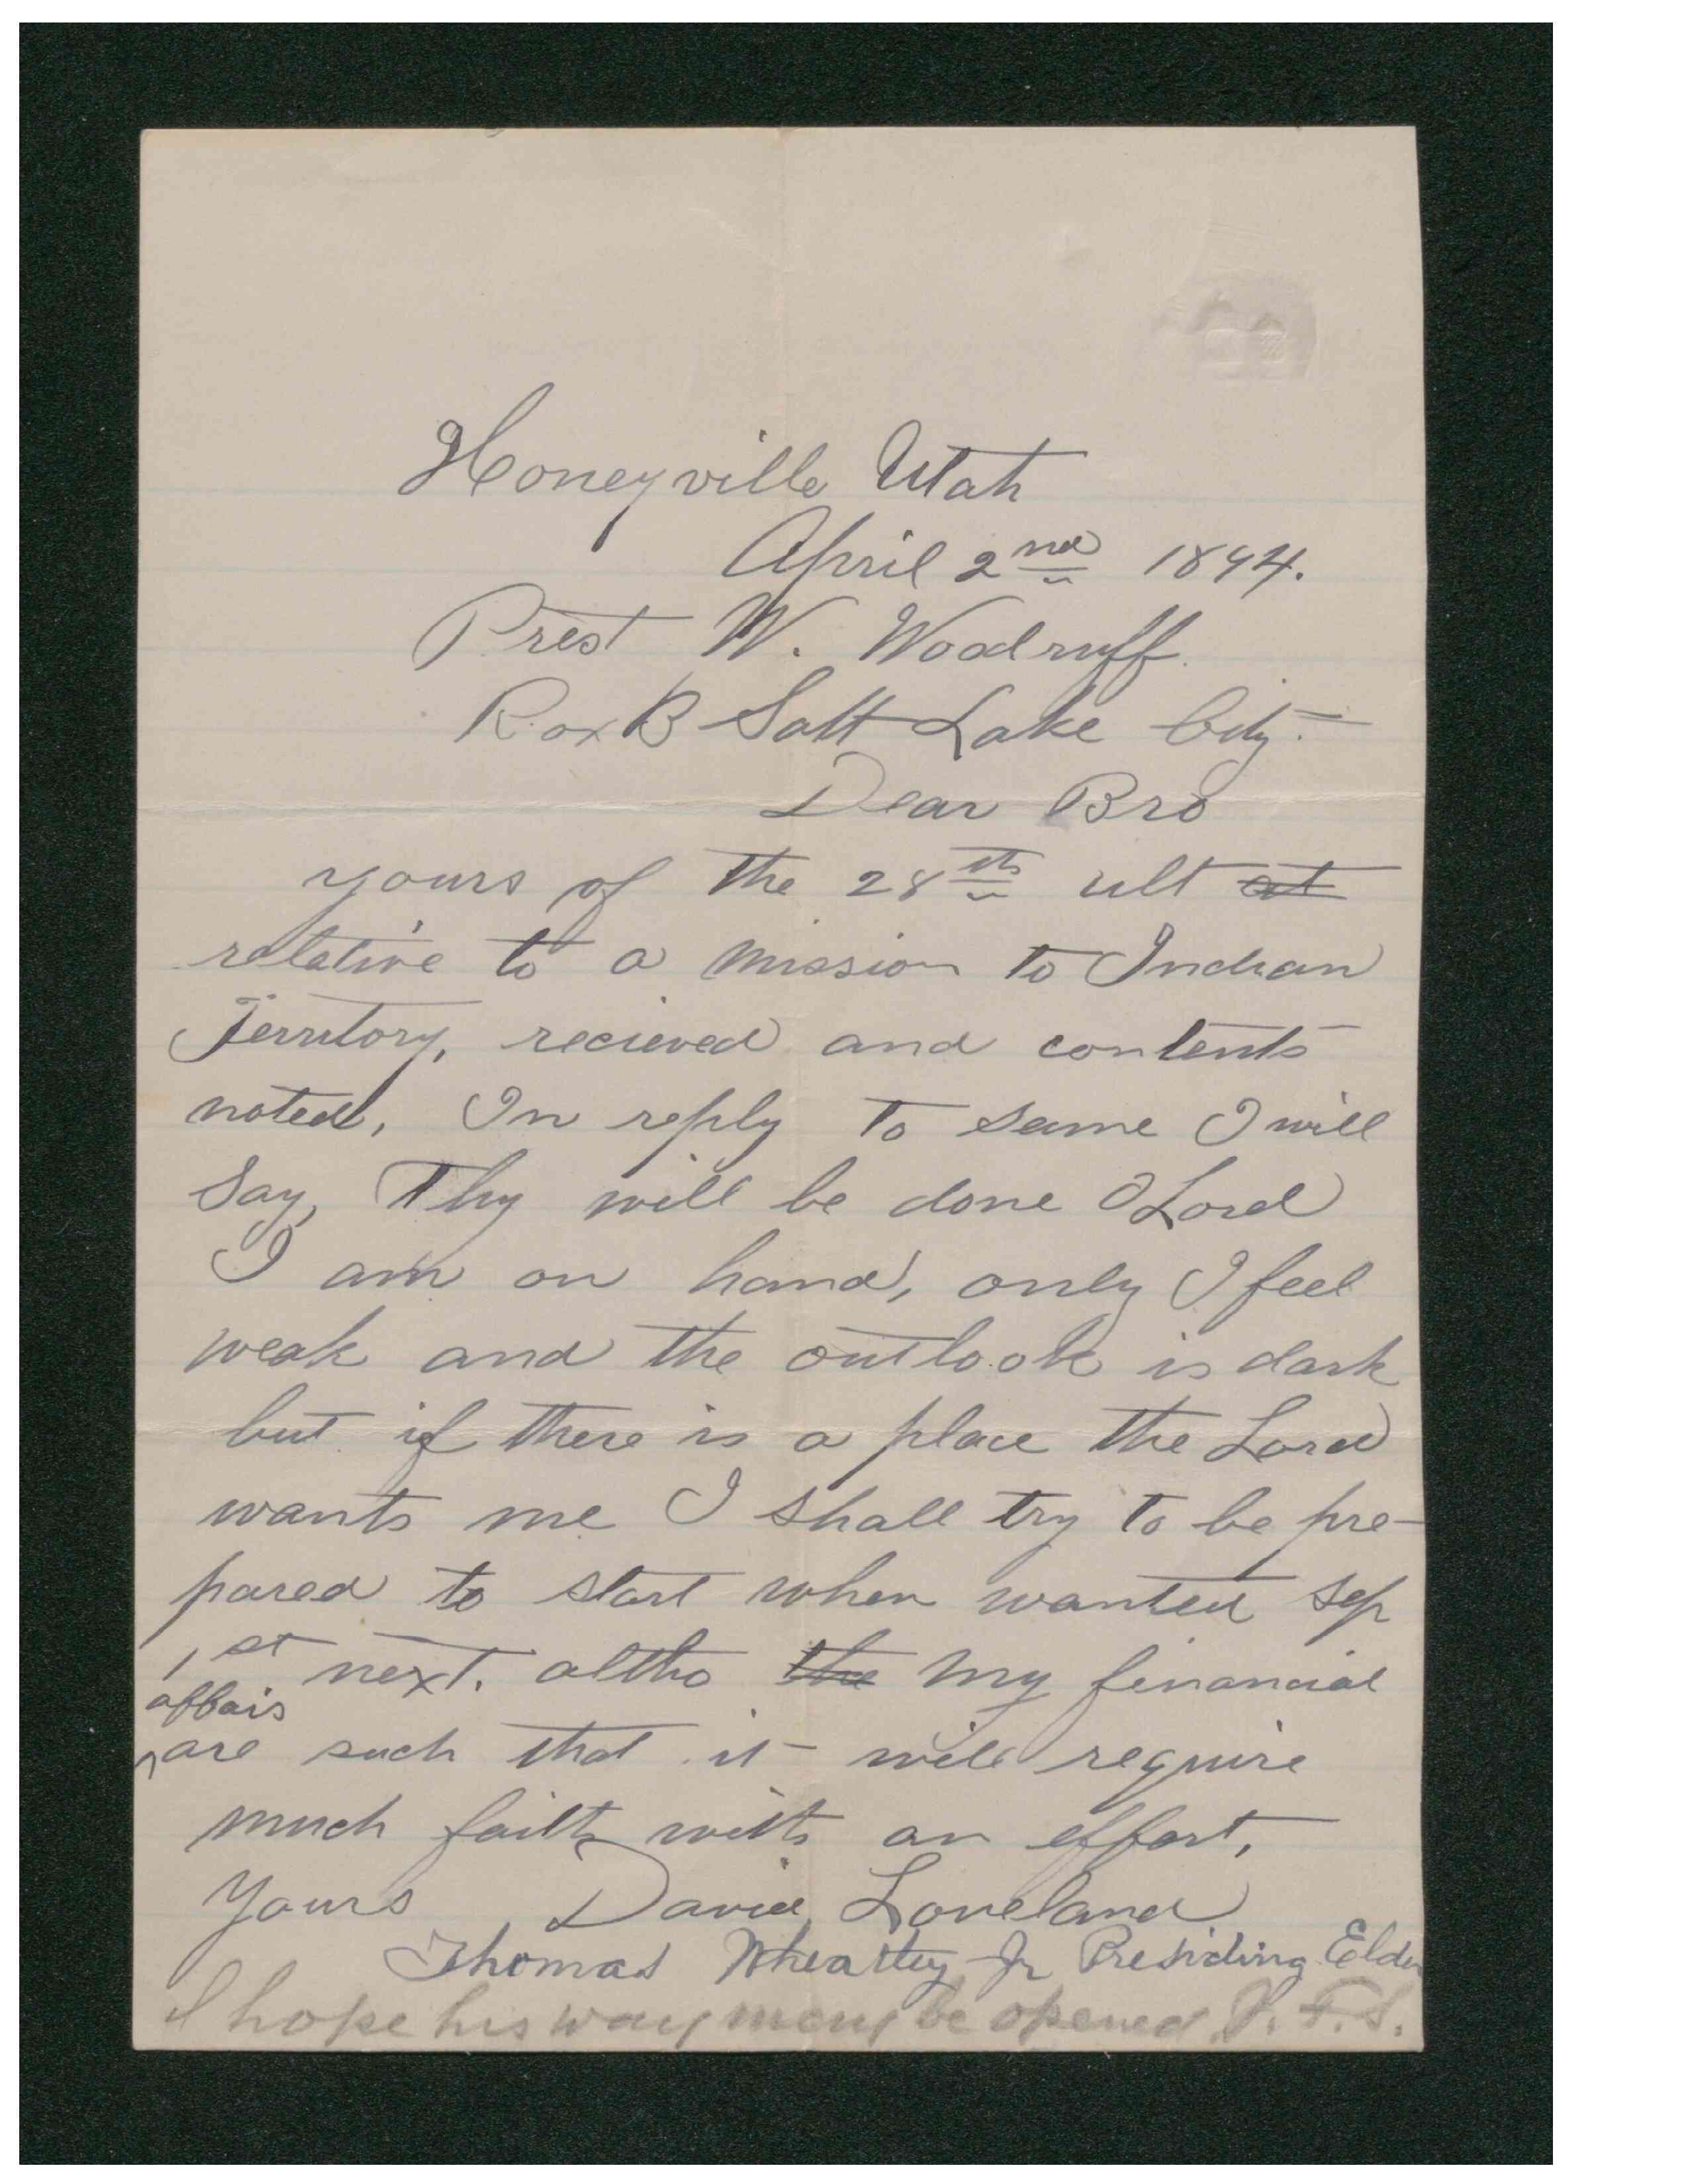 Honeyville Utah
April 2nd 1894.
Prest W. Woodruff.
Box B Salt Lake City.
Dear Bro
yours of the 28th ult at
relative to a mission to Indian
Territory, recieved and contents
noted, In reply to same I will
say, Thy will be done O Lord
I am on hand, only I feel
weak and the outlook is dark
but if there is a place the Lord
wants me I shall try to be pre-
pared to start when wanted sep
1st next. altho the my financial
affais
are such that it will require
much faith with an effort,
Yours David Loveland
Thomas Wheatley Jr Presiding Elder
I hope his way may be opened. J. F. S.